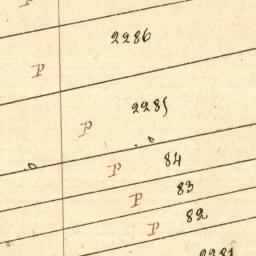 P
2286
P
2285
P
P 84
P 83
P 82
2281